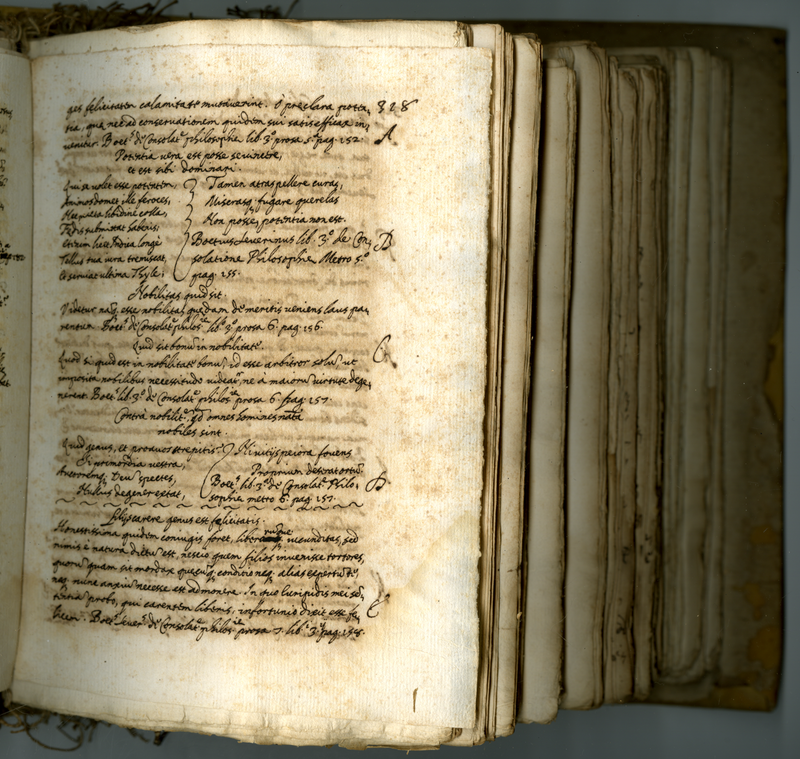 ges felicitatem calamitate mutaverint. O præclara poten-
328
tia, quæ nec ad conservationem quidem sui satis efficax in-
A
venitur. Boet. de Consolat. philosophiæ lib. 3º prosa 5ª pag. 152.
Potentia vera est posse se vincere,
et est sibi dominari.
Qui se volet esse potentem,
Animos domet, ille feroces,
Nec victa libidine colla,
Fædis submittat habenis;
Etenim licet Indica longè
Tellus tua iura tremiscat,
Et serviat ultima Thyle;
Tamen atras pellere curas,
Miserasq; fugare querelas
Non posse, potentia non est.
Boetius Severinus lib. 3º de Con-
B
solatione Philosophiæ Metro 5º
pag. 155.
Nobilitas quid sit.
Videtur namq; esse nobilitas quædam de meritis veniens laus pa-
rentum. Boet. de Consolat. philos. lib. 3º prosa 6. pag. 156.
Quid sit bonu in nobilitate.
C
Quod si quid est in nobilitate bonu, id esse arbitror solu, ut
imposita nobilibus necessitudo videat, ne à maioru virtute dege-
nerent. Boet. lib. 3º de Consolat. philos. prosa 6. pag. 157.
Contra nobilit. qd omnes homines nati
nobiles sint.
Quid genus, et proavos strepitis?
Si primordia vestra,
Auctoremq; Deu spectes,
Nullus degener extat,
Ni vitijs peiora fovens
Proprium deserat ortu.
Boet. lib. 3º de Consolat. Philo-
D
sophiæ metro 6. pag. 157.
Filijs carere genus est fælicitatis.
Honestissima quidem coniugis foret, liberorumque iucunditas, sed
nimis è natura dictu est, nescio quem filios invenisse tortores,
quoru quam sit mordax quæcuq; conditio neq; alias expertu te,
neq; nunc anxiu necesse est admonere. In quo Euripidis mei sen-
E
tentia probo, qui carentem liberis, infortunio dixit esse fe-
licem. Boet. Sever. de Consolat. philos. prosa 7. lib. 3º pag. 158.